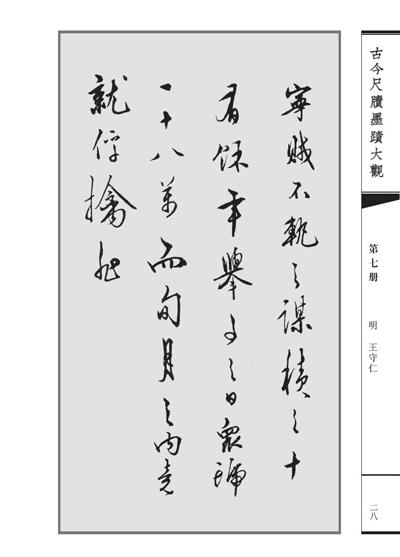 古今尺牘墨蹟大觀
第七册
明 王守仁
二八
寧賊不軌之謀積之十
有餘年舉事之日眾號
一十八萬而旬月之内竟
就俘擒非